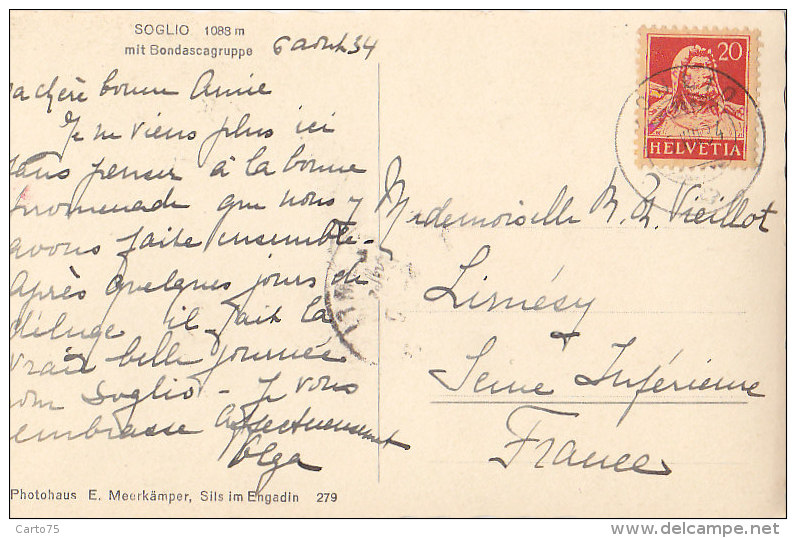 SOGLIO 1088 m
mit Bondascagruppe
6 août 34
Ma chère bonne Amie
Je ne viens plus ici
sans penser à la bonne
promenade que nous y
avons faite ensemble-
Après quelques jours de
déluge il fait la
vraie belle journée
pour Soglio - Je vous
embrasse affectueusement
Olga
Photohaus E. Meerkämper, Sils im Engadin 279
20
HELVETIA
Mademoiselle Vieillot
Limésy
Seine Inférieure
France
Carto75
delcampe.net